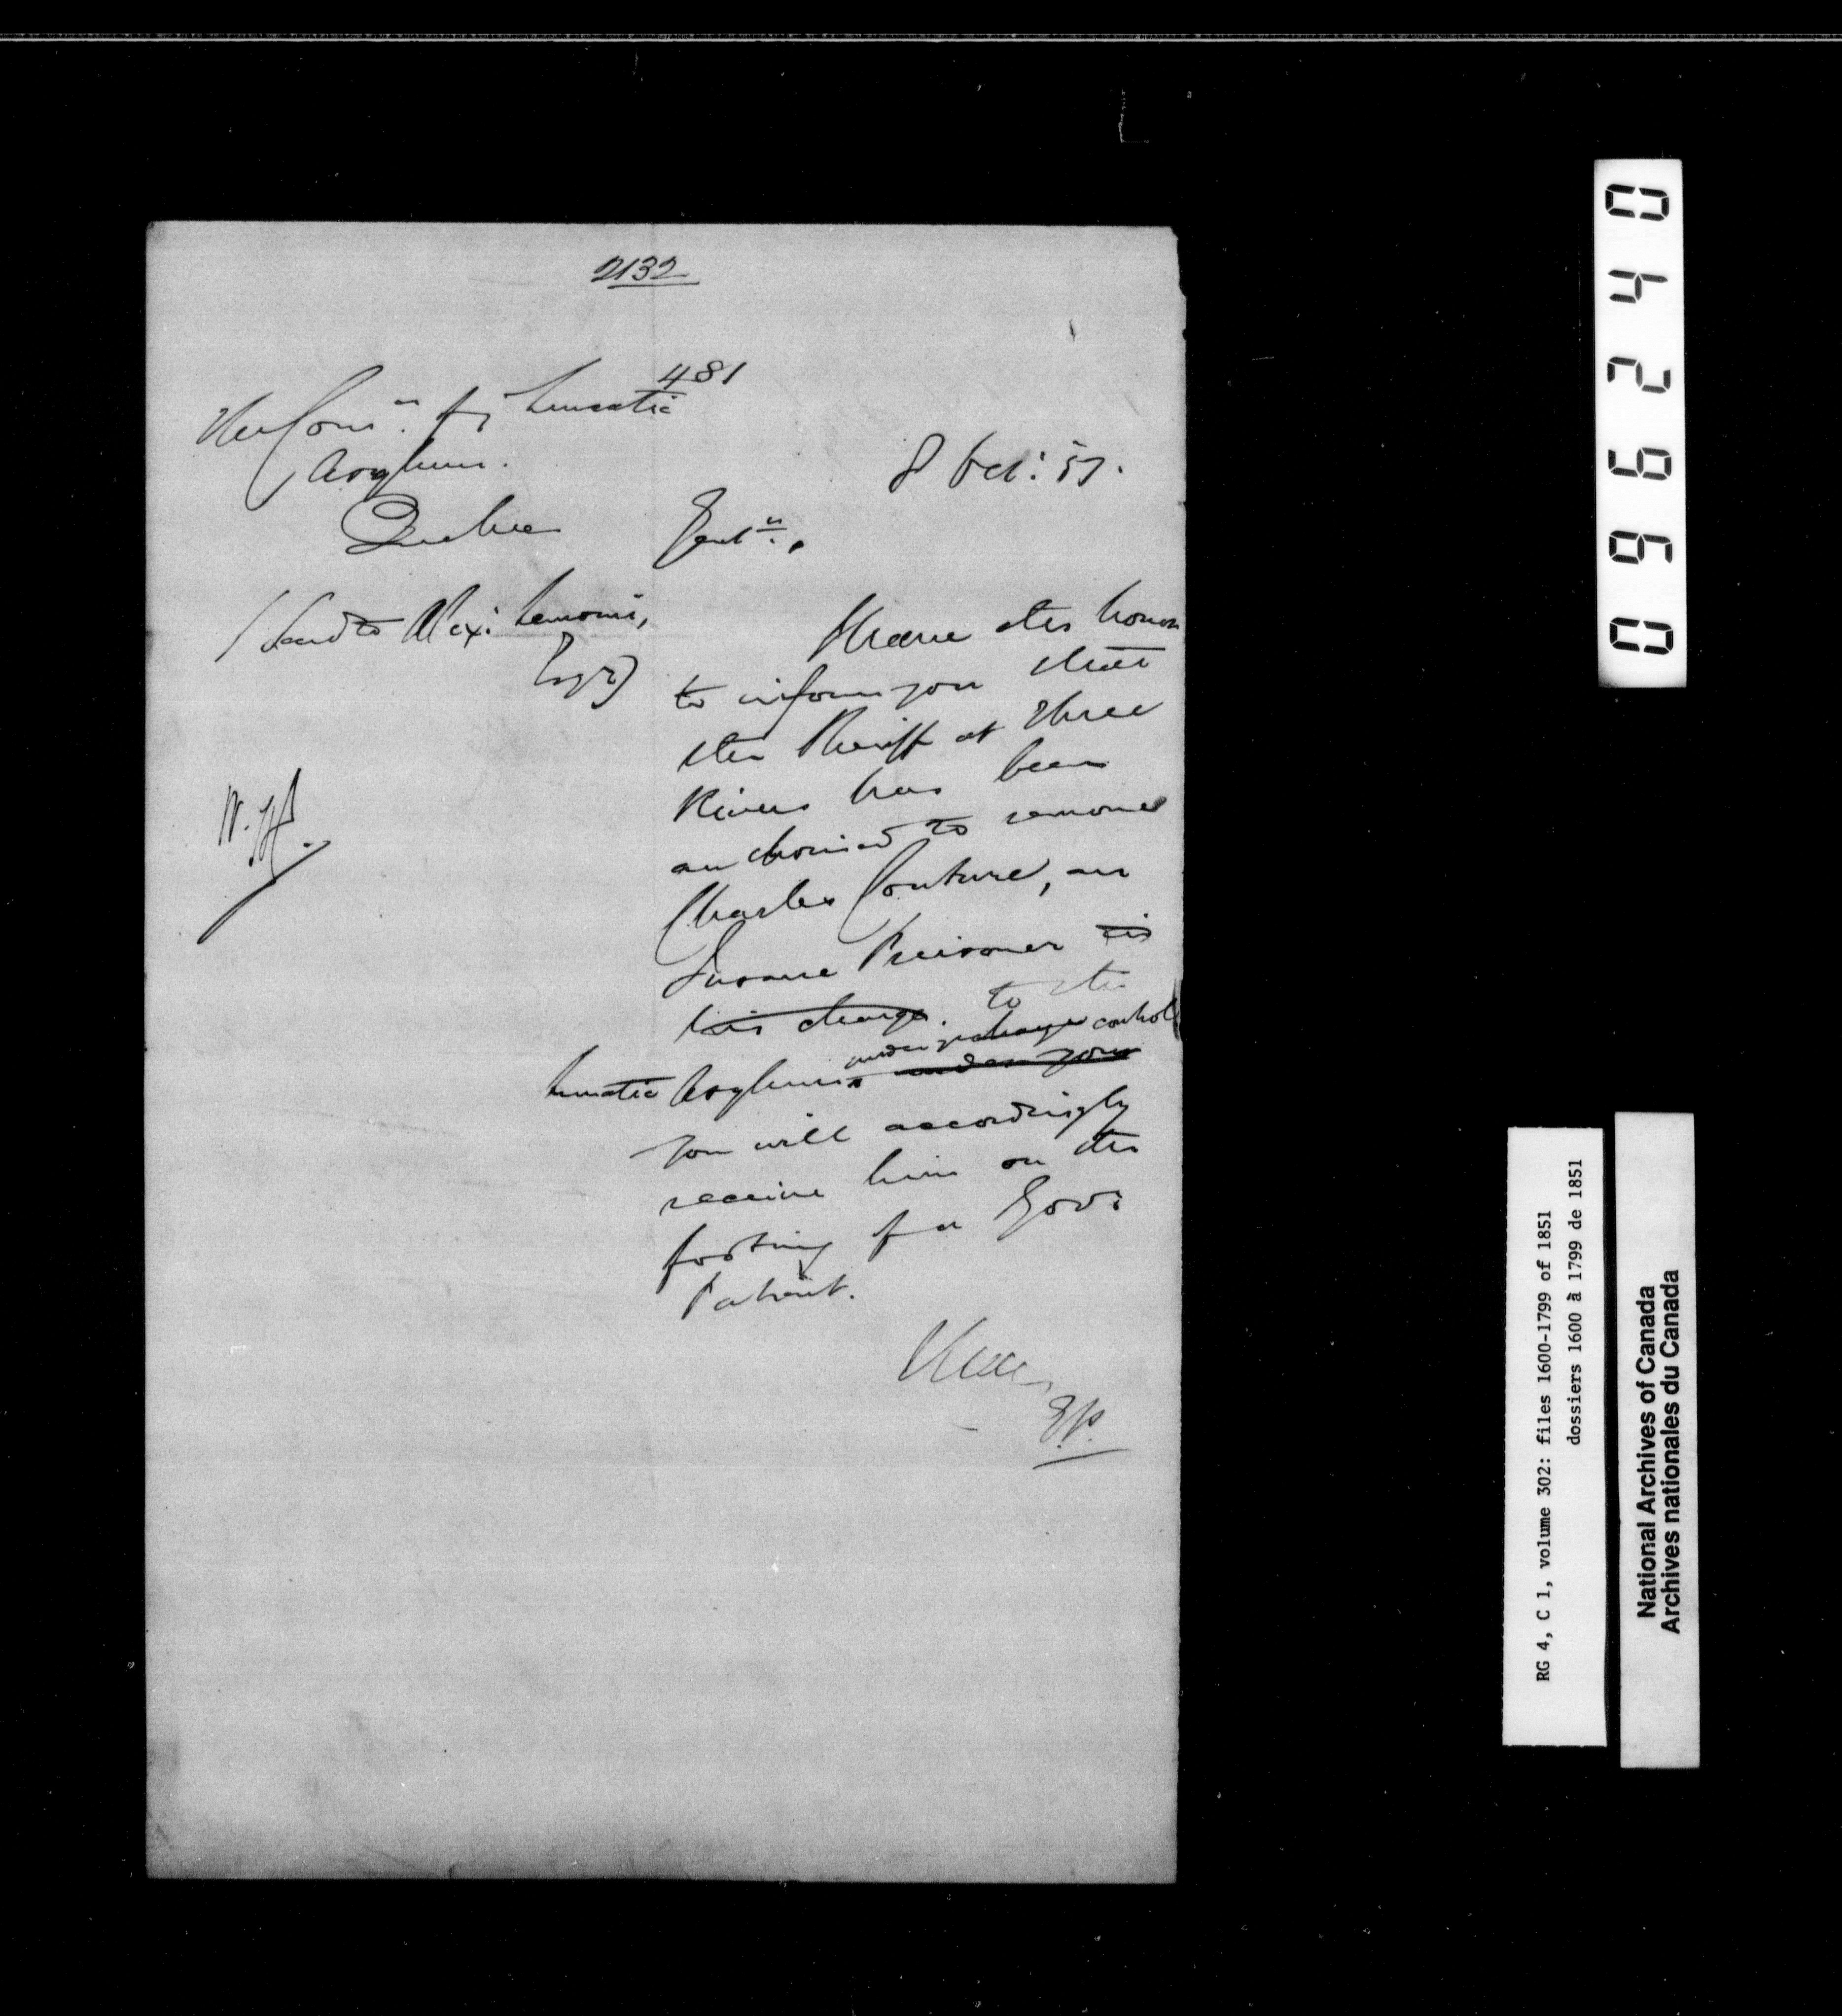 2132
481
The Comrs. for Lunatic
Asylum.
Quebec
8 Oct: 51.
Gentn.,
(Send to Alexr. Lemoine,
Esqr)
I have the honor
to inform you that
the Sheriff at Three
Rivers has been
authorised to remove
Charles Couture, an
Insane Prisoner in
his charge. to the
under yr charge control
Lunatic Asylum under your
You will accordingly
receive him on the
footing of a Govt
Patient.
I have,
E.P.
096240
RG 4, C 1, volume 302: files 1600-1799 of 1851
dossiers 1600 à 1799 de 1851
National Archives of Canada
Archives nationales du Canada